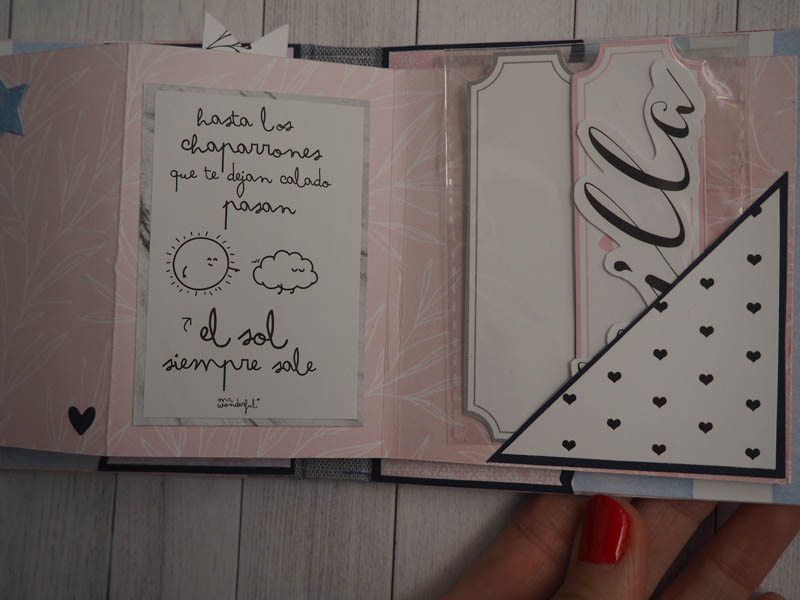 hasta los
chaparrones
que te dejan calado
pasan
el sol
siempre sale
mr.
wonderful*
lla